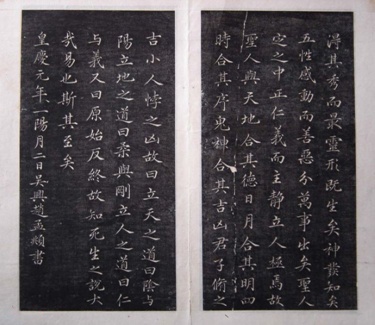 得其秀而最靈形既生矣神發知矣
五性感動而善惡分萬事出矣聖人
定之中正仁義而主靜立人極焉故
聖人與天地合其德日月合其明四
時合其序鬼神合其吉凶君子脩之
吉小人悖之凶故曰立天之道曰陰與
陽立地之道曰柔與剛立人之道曰仁
與義又曰原始反終故知死生之說大
哉易也斯其至矣
皇慶元年陽月二日吳興趙孟頫書